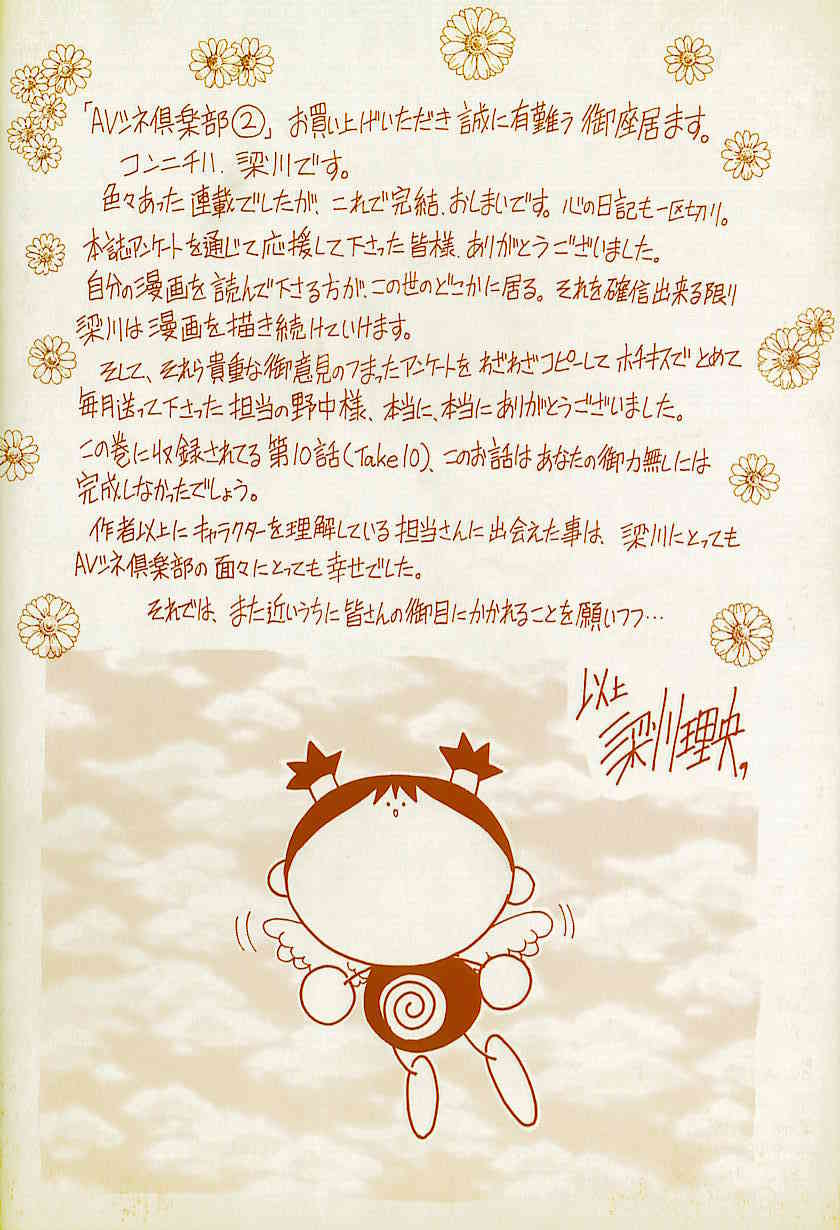 「AVシネ倶楽部②」お買い上げいただき誠に有難う御座居ます。
コンニチハ、梁川です。
色々あった連載でしたが、これで完結、おしまいです。心の日記も一区切り。
本誌アンケートを通じて応援して下さった皆様、ありがとうございました。
自分の漫画を読んで下さる方が、この世のどこかに居る。それを確信出来る限り
梁川は漫画を描き続けていけます。
そして、それら貴重な御意見のつまったアンケートをわざわざコピーしてホチキスでとめて
毎月送って下さった担当の野中様、本当に、本当にありがとうございました。
この巻に収録されてる第10話(Take10)、このお話はあなたの御力無しには
完成しなかったでしょう。
作者以上にキャラクターを理解している担当さんに出会えた事は、梁川にとっても
AVシネ倶楽部の面々にとっても幸せでした。
それでは、また近いうちに皆さんの御目にかかれることを願いつつ…
以上
梁川理央。